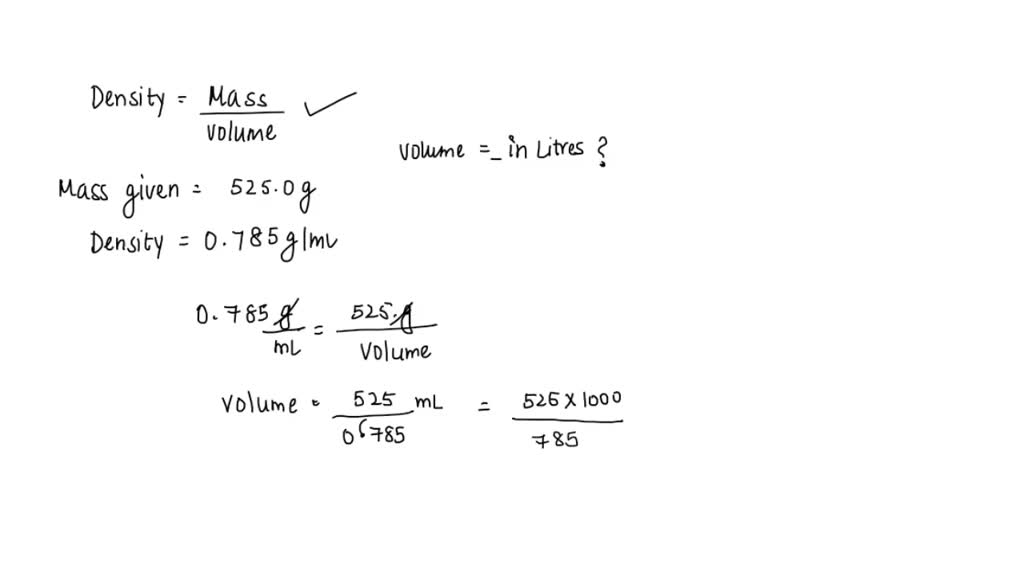 Density = Mass / volume ✓
volume = _ in Litres ?
Mass given = 525.0g
Density = 0.785g/mL
0.785 g / mL = 525.g / Volume
Volume = 525 / 0.785 mL = 525 x 1000 / 785